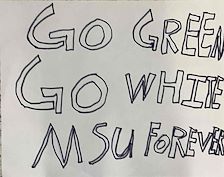 GO GREEN
GO WHITE
MSU FOREVER